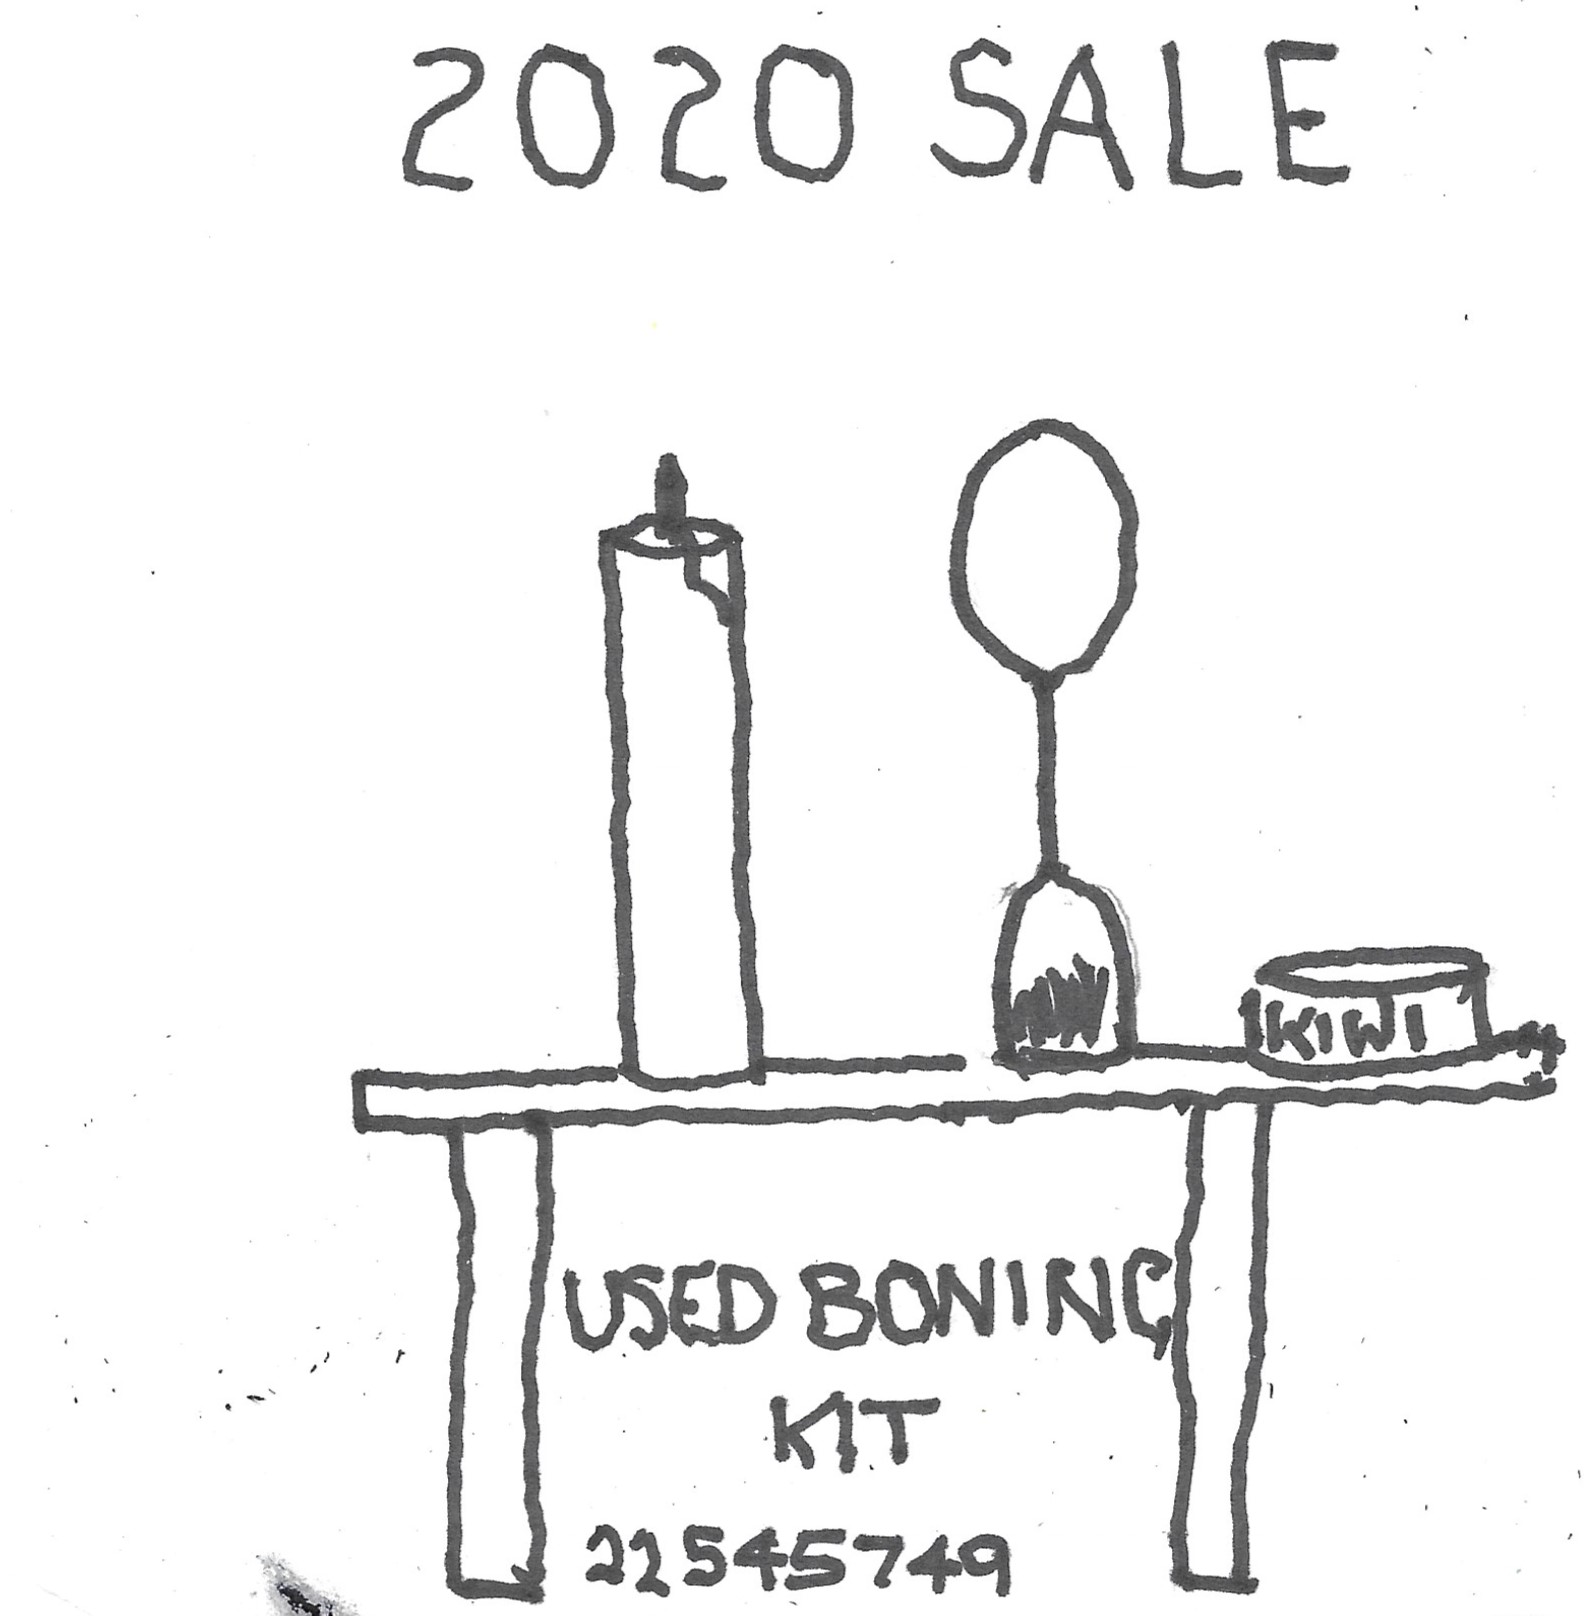 2020 SALE
KIWI
USED BONING
KIT
22545749